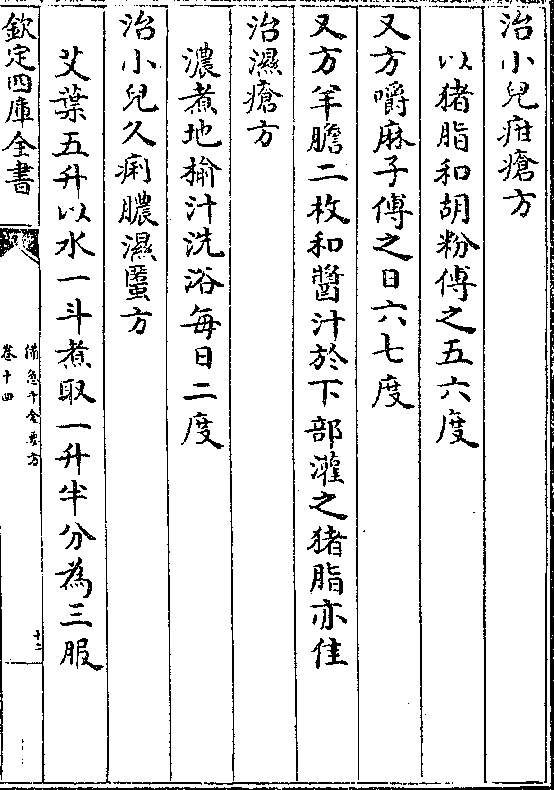 治小兒疳瘡方
以猪脂和胡粉傅之五六度
又方嚼麻子傅之日六七度
又方羊膽二枚和醬汁於下部灌之猪脂亦佳
治濕瘡方
濃煮地榆汁洗浴每日二度
治小兒久痢膿濕䘌方
艾葉五升以水一斗煮取一升半分為三服
欽定四庫全書
備急千金要方
卷十四
十二